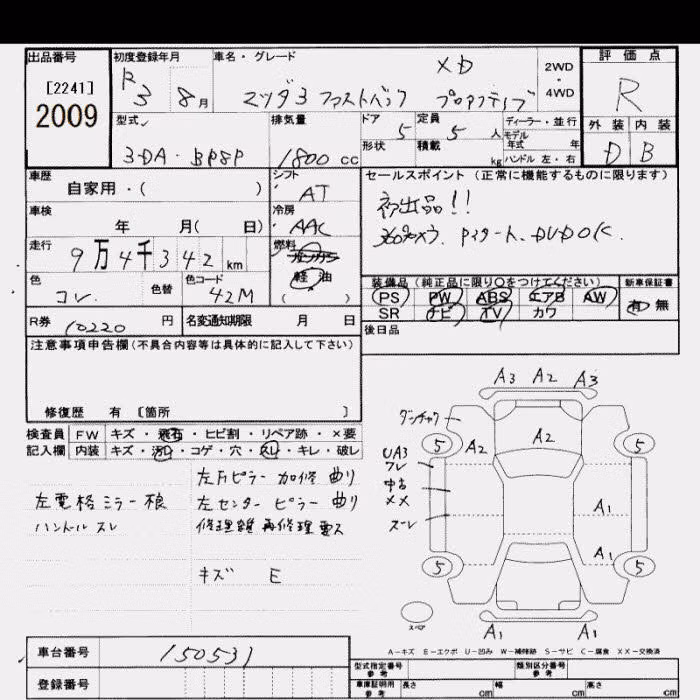 出品番号 初度登録年月 車名・グレード 評価点
[2241] R3 8月 XD 2WD・4WD R
2009 マツダ3 ファストバック プロアクティブ
型式 排気量 ドア 定員 ディーラー・並行 外装 内装
3DA・BP8P 1800cc 5 5人 モデル年式 年 D B
形状 積載 kg ハンドル 左・右
車歴 シフト セールスポイント(正常に機能するものに限ります)
自家用・( ) AT 初出品!!
車検 冷房
年 月( 日) AAC 360°カメラ、Pスタート、DVDOK.
走行 燃料
9万4千342km ガソリン
色 色替 色コード 軽油 装備品(純正品に限り○をつけてください) 新車保証書
コン 42M ( ) PS PW ABS エアB AW 有 無
R券 10220円 名変通知期限 月 日 SR ナビ TV カワ
後日品
注意事項申告欄(不具合内容等は具体的に記入して下さい)
修復歴 有 [箇所 ]
A3 A2 A3
検査員 FW キズ・飛石・ヒビ割・リペア跡・×要
記入欄 内装 キズ・汚レ・コゲ・穴・スレ・キレ・破レ
5 A2 A2 5
左Fピラー 加修 曲り
左電格ミラー 左センターピラー 曲り
ハンドル スレ
キズ E
UA3
中古
××
A1
A1
5 5
スペア
A1 A1
A−キズ E−エクボ U−凹み W−補修跡 S−サビ C−腐食 ××−交換済
車台番号 150531
登録番号
型式指定番号 参考 類別区分番号 参考
車庫証明用 参考 長さ cm 幅 cm 高さ cm